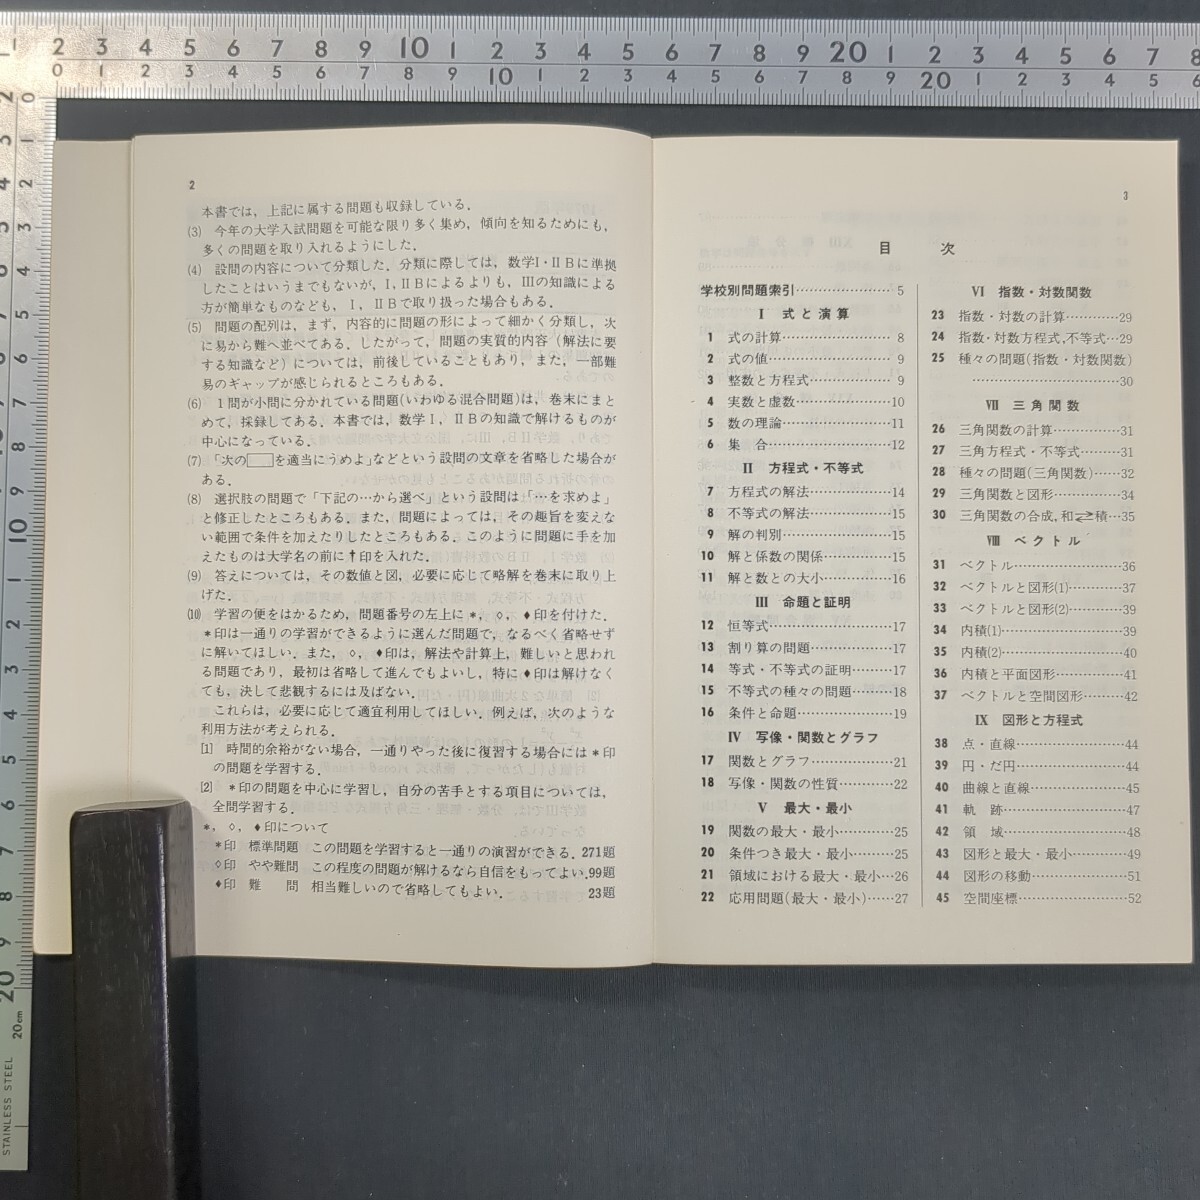 2
本書では，上記に属する問題も収録している．
(3) 今年の大学入試問題を可能な限り多く集め，傾向を知るためにも，
多くの問題を取り入れるようにした．
(4) 設問の内容について分類した．分類に際しては，数学Ⅰ・ⅡBに準拠
したことはいうまでもないが，Ⅰ，ⅡBによるよりも，Ⅲの知識による
方が簡単なものなども，Ⅰ，ⅡBで取り扱った場合もある．
(5) 問題の配列は，まず，内容的に問題の形によって細かく分類し，次
に易から難へ並べてある．したがって，問題の実質的内容（解法に要
する知識など）については，前後していることもあり，また，一部難
易のギャップが感じられるところもある．
(6) 1問が小問に分かれている問題(いわゆる混合問題)は，巻末にまと
めて，採録してある．本書では，数学Ⅰ，ⅡBの知識で解けるものが
中心になっている．
(7) 「次の□を適当にうめよ」などという設問の文章を省略した場合が
ある．
(8) 選択肢の問題で「下記の…から選べ」という設問は「…を求めよ」
と修正したところもある．また，問題によっては，その趣旨を変えな
い範囲で条件を加えたりしたところもある．このように問題に手を加
えたものは大学名の前に†印を入れた．
(9) 答えについては，その数値と図，必要に応じて略解を巻末に取り上
げた．
(10) 学習の便をはかるため，問題番号の左上に＊，◇，♦印を付けた．
＊印は一通りの学習ができるように選んだ問題で，なるべく省略せず
に解いてほしい．また，◇，♦印は，解法や計算上，難しいと思われ
る問題であり，最初は省略して進んでもよいし，特に♦印は解けなく
ても，決して悲観するには及ばない．
これらは，必要に応じて適宜利用してほしい．例えば，次のような
利用方法が考えられる．
[1] 時間的余裕がない場合，一通りやった後に復習する場合には＊印
の問題を学習する．
[2] ＊印の問題を中心に学習し，自分の苦手とする項目については，
全問学習する．
＊，◇，♦印について
＊印 標準問題 この問題を学習すると一通りの演習ができる．271題
◇印 やや難問 この程度の問題が解けるなら自信をもってよい．99題
♦印 難 問 相当難しいので省略してもよい． 23題
3
目 次
学校別問題索引………………… 5
Ⅰ 式と演算
1 式の計算……………………… 8
2 式の値………………………… 9
3 整数と方程式………………… 9
4 実数と虚数……………………10
5 数の理論………………………11
6 集 合…………………………12
Ⅱ 方程式・不等式
7 方程式の解法…………………14
8 不等式の解法…………………15
9 解の判別………………………15
10 解と係数の関係………………15
11 解と数との大小………………16
Ⅲ 命題と証明
12 恒等式…………………………17
13 割り算の問題…………………17
14 等式・不等式の証明…………17
15 不等式の種々の問題…………18
16 条件と命題……………………19
Ⅳ 写像・関数とグラフ
17 関数とグラフ…………………21
18 写像・関数の性質……………22
Ⅴ 最大・最小
19 関数の最大・最小……………25
20 条件つき最大・最小…………25
21 領域における最大・最小…26
22 応用問題(最大・最小)……27
Ⅵ 指数・対数関数
23 指数・対数の計算…………29
24 指数・対数方程式,不等式…29
25 種々の問題(指数・対数関数)
……………………………30
Ⅶ 三角関数
26 三角関数の計算………………31
27 三角方程式・不等式…………31
28 種々の問題(三角関数)……32
29 三角関数と図形………………34
30 三角関数の合成,和⇄積…35
Ⅷ ベクトル
31 ベクトル………………………36
32 ベクトルと図形(1)…………37
33 ベクトルと図形(2)…………39
34 内積(1)………………………39
35 内積(2)………………………40
36 内積と平面図形………………41
37 ベクトルと空間図形…………42
Ⅸ 図形と方程式
38 点・直線………………………44
39 円・だ円………………………44
40 曲線と直線……………………45
41 軌 跡…………………………47
42 領 域…………………………48
43 図形と最大・最小……………49
44 図形の移動……………………51
45 空間座標………………………52
20cm
STAINLESS STEEL